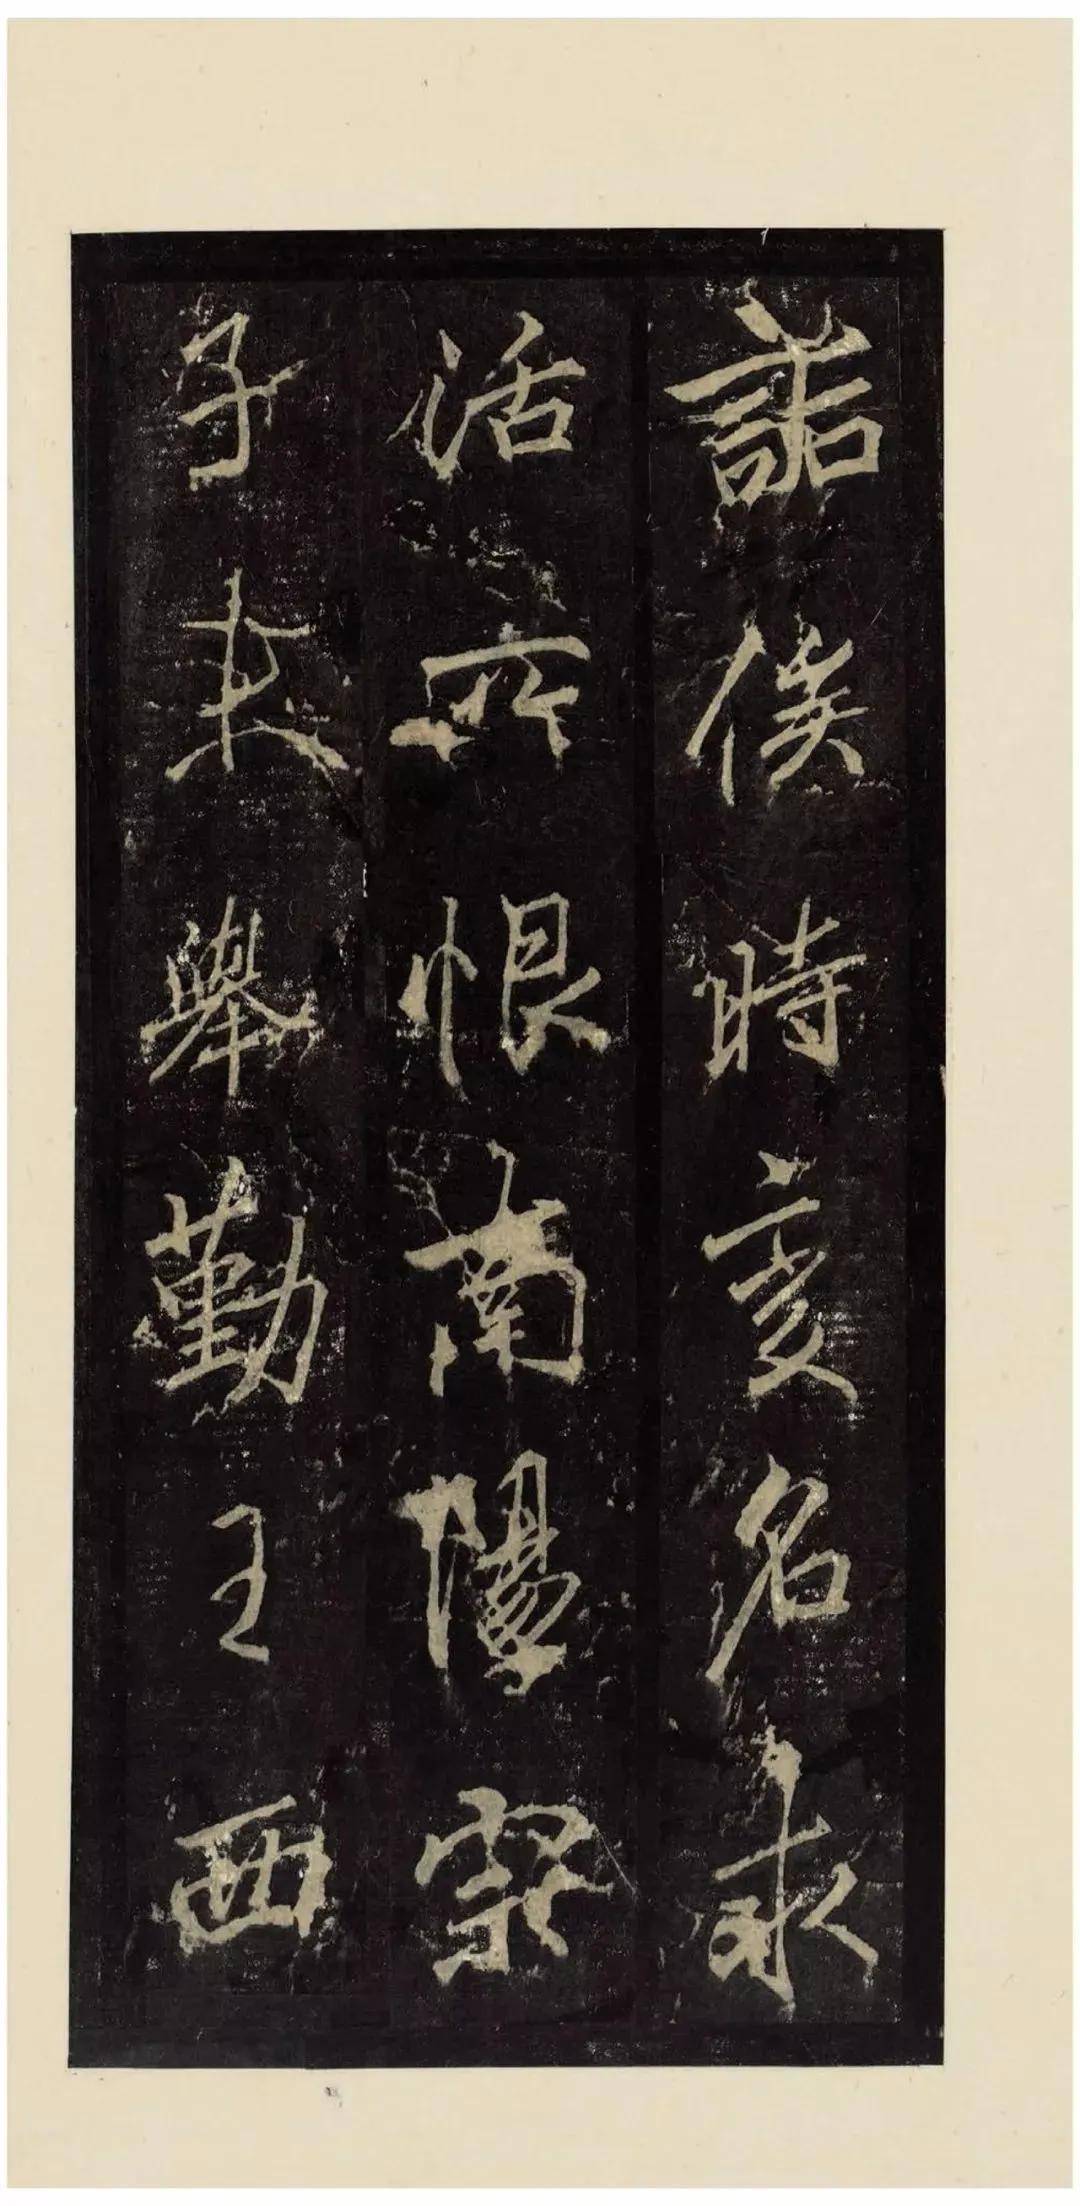 諸侯時變名求
活所恨南陽宗
子未舉勤王西